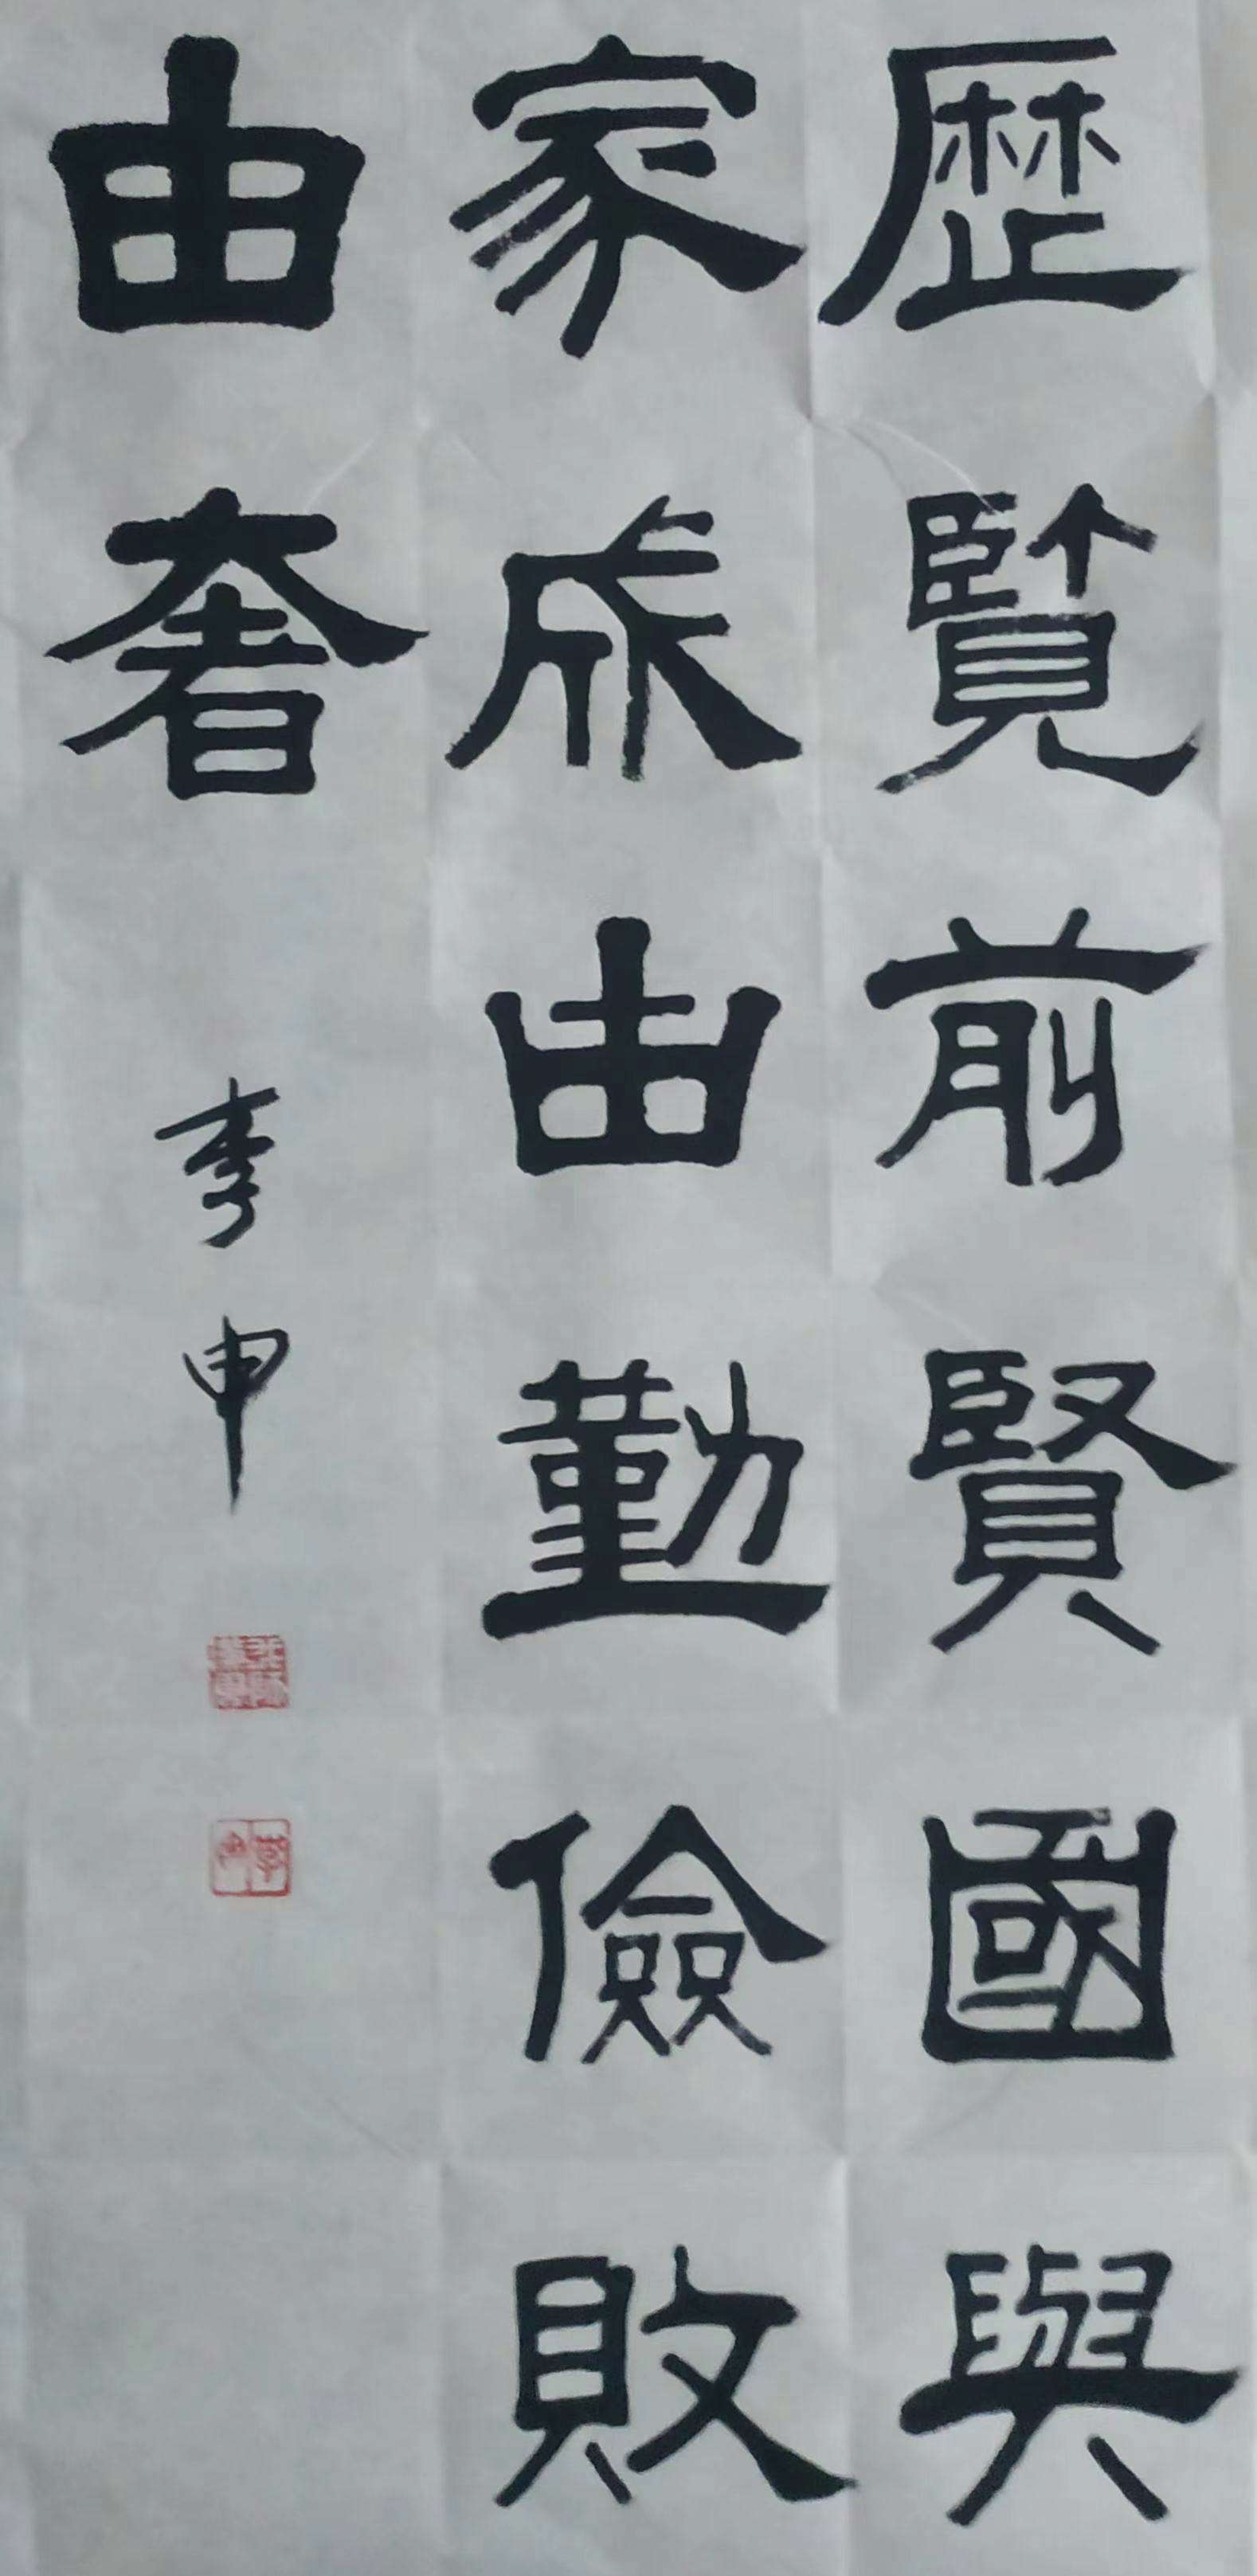 歷覽前賢國與
家成由勤儉敗
由奢
李申